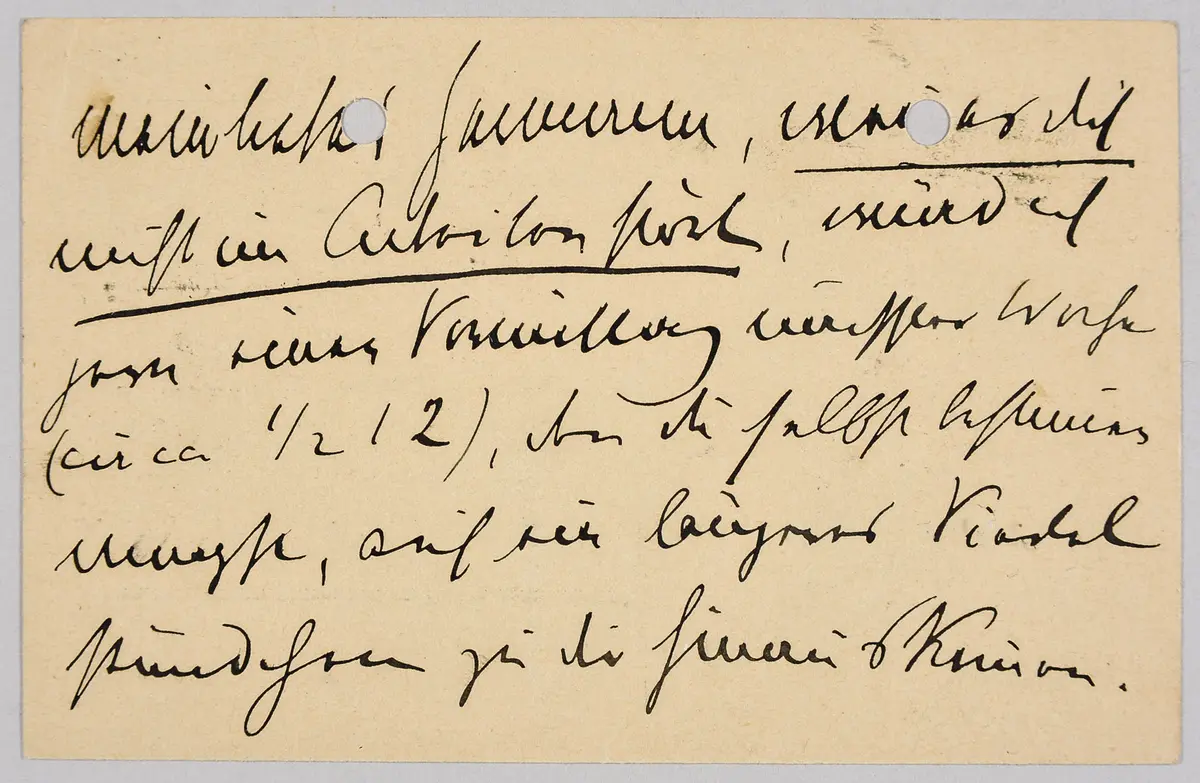 mein liebster Hermann, wenn es dich
nicht im Arbeiten stört, würd ich
gern einen Vormittag nächster Woche
(circa 1/2 12), den du selbst bestimmen
magst, auf ein längeres Viertel
stündchen zu dir hinauskommen.